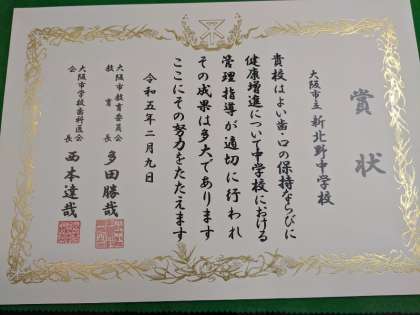 賞状
大阪市立 新北野中学校
貴校はよい歯・口の保持ならびに
健康増進について中学校における
管理指導が適切に行われ
その成果は多大であります
ここにその努力をたたえます
令和五年二月九日
大阪市教育委員会
教育長 多田勝哉
大阪市学校歯科医会
会長 西本達哉